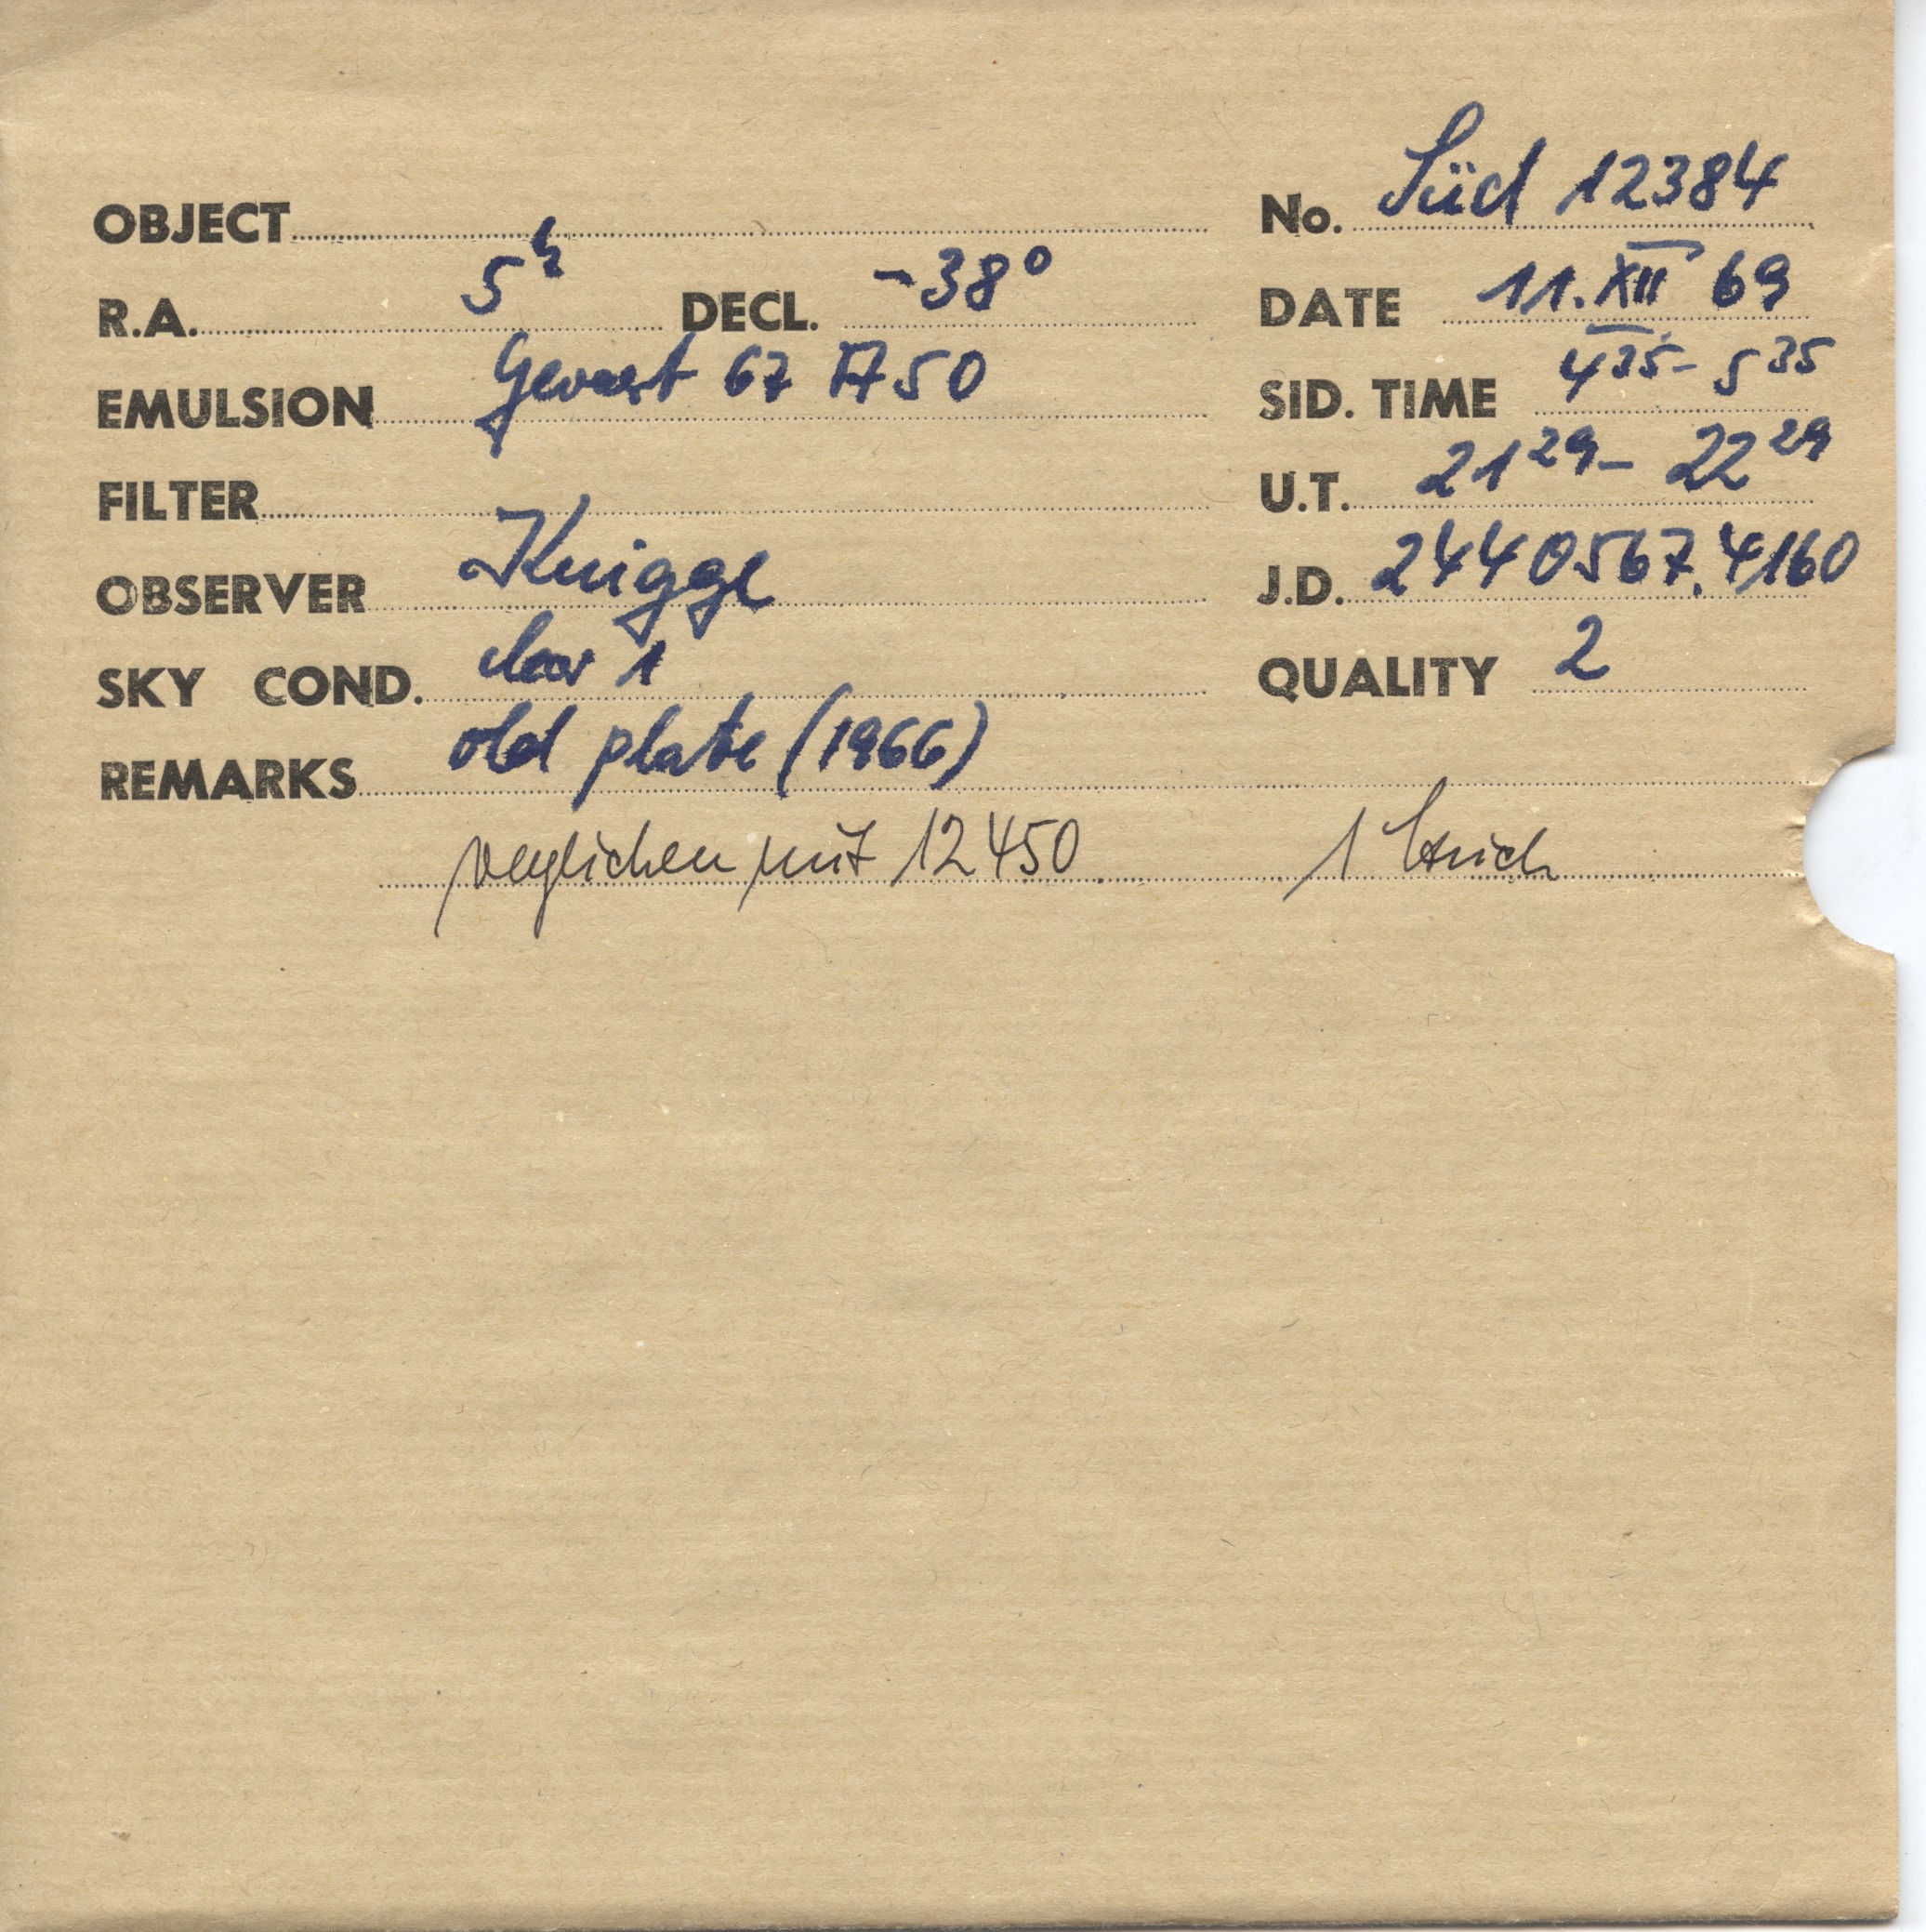 OBJECT No. Süd 12384
R.A. 5h DECL. -38° DATE 11. XII 69
EMULSION Gevaert 67 A 50 SID. TIME 4 35 - 5 35
FILTER U.T. 21 29 - 22 29
OBSERVER Knigge J.D. 2440567.4160
SKY COND. clear 1 QUALITY 2
REMARKS old plate (1966)
verglichen mit 12450 1 Strich